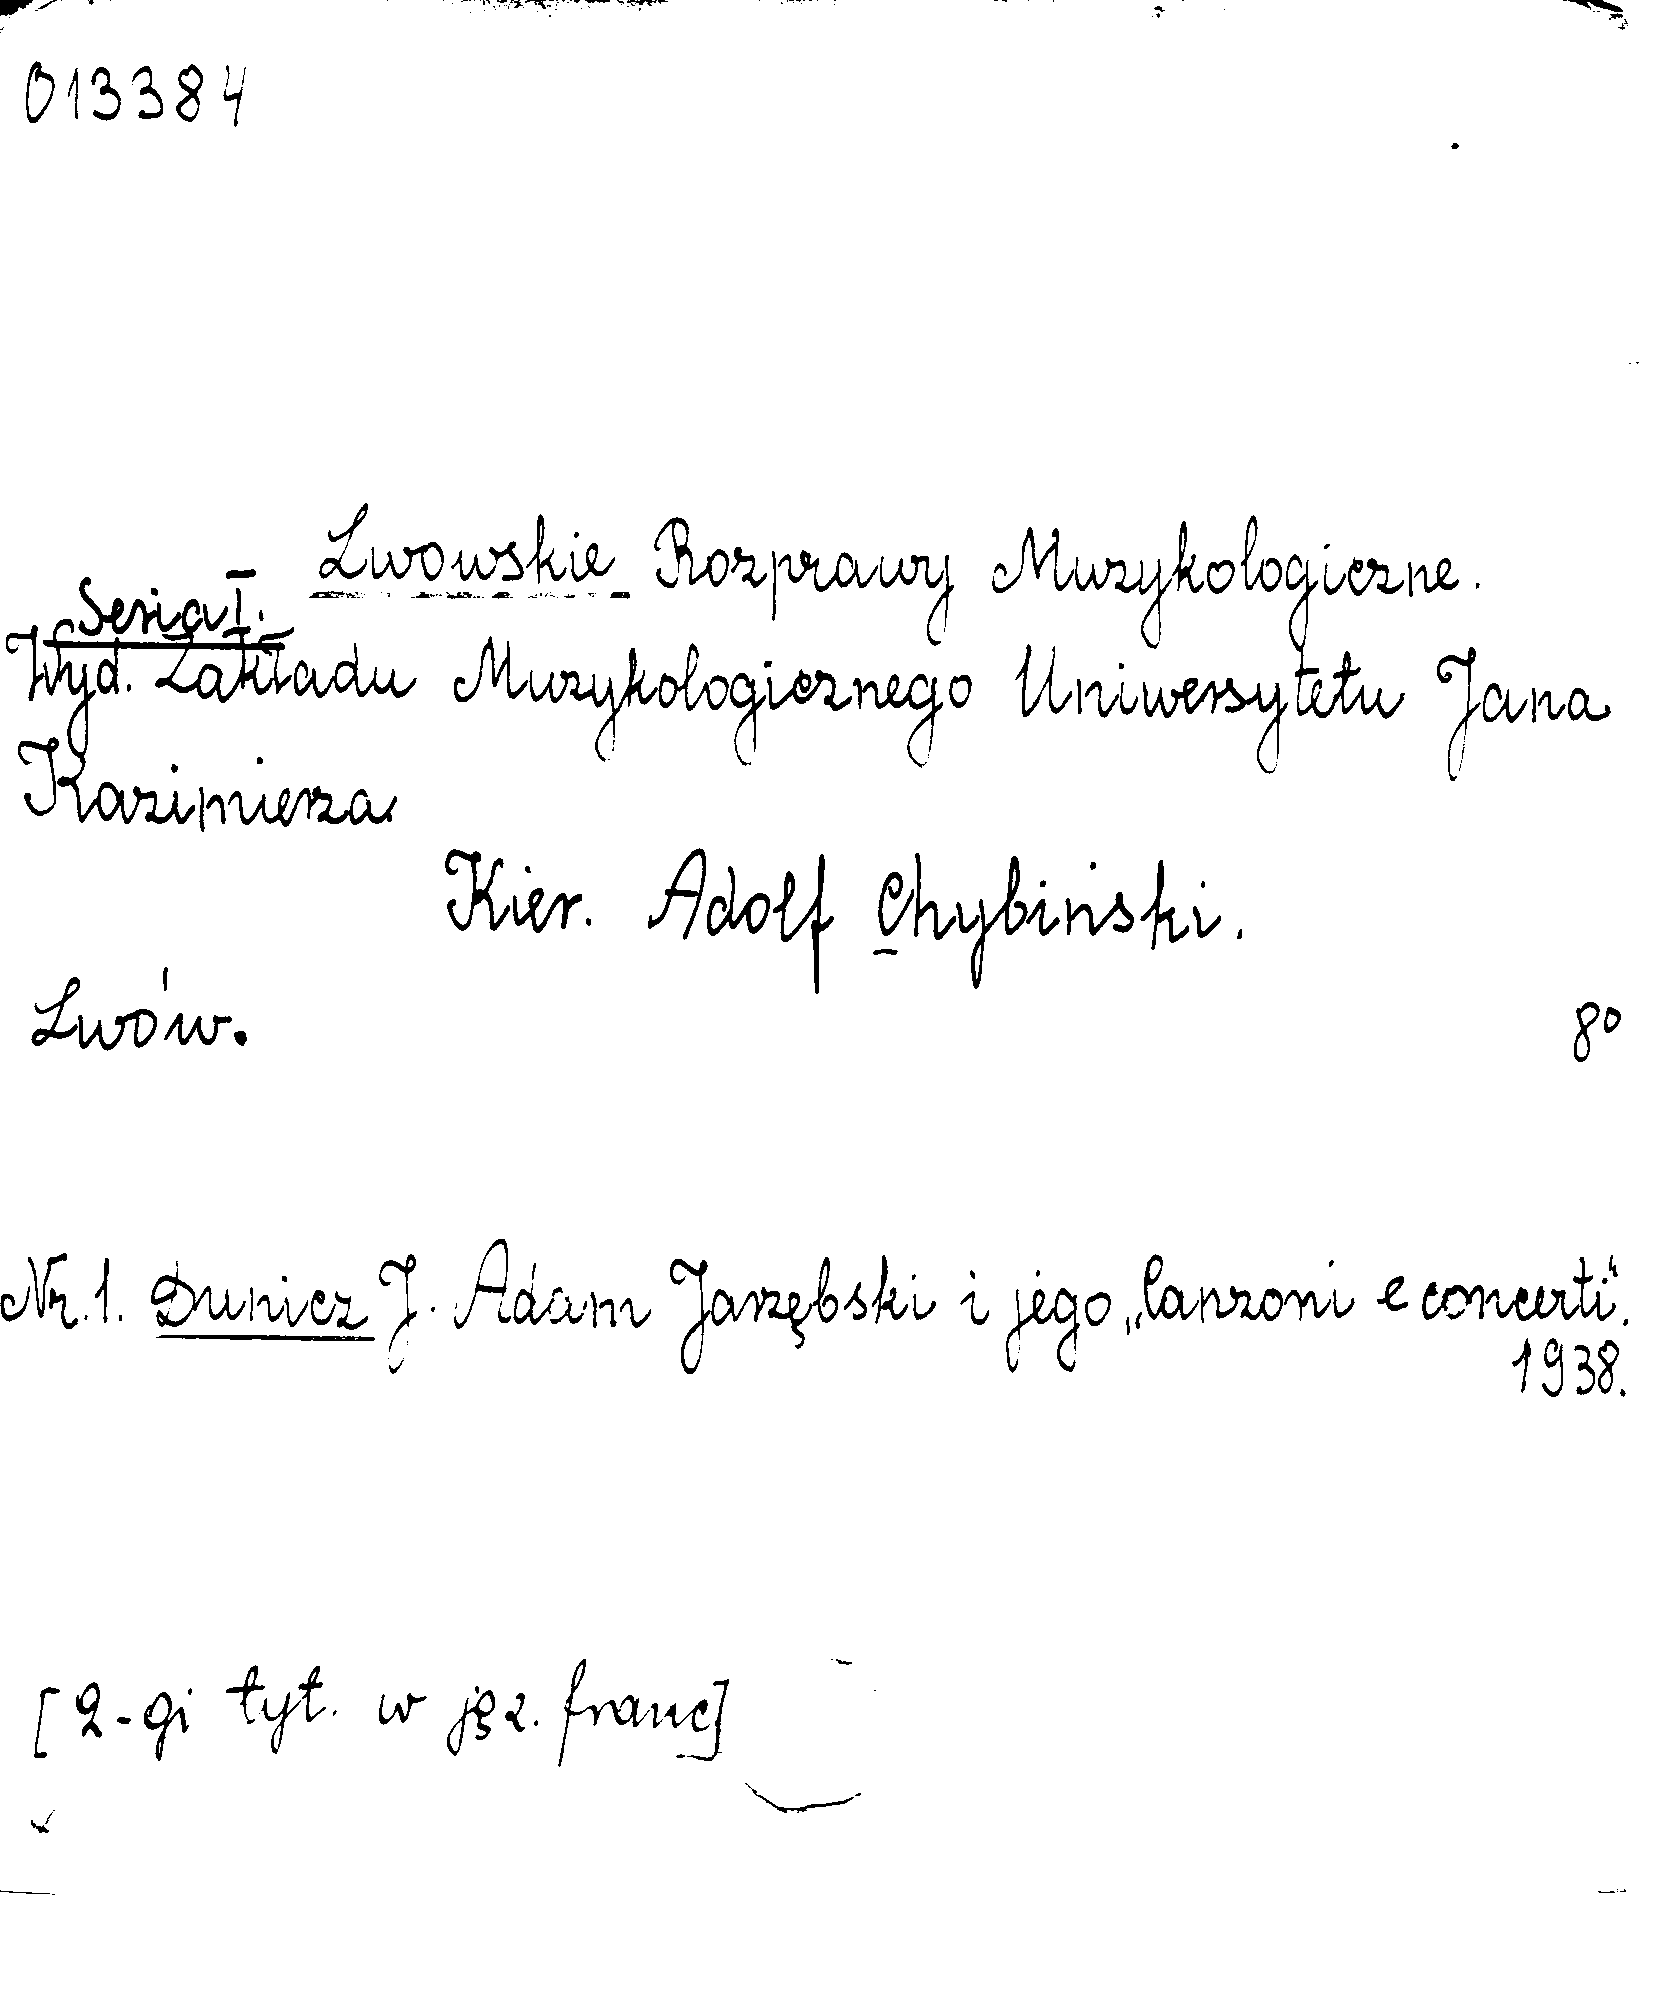 013384
Lwowskie Rozprawy Muzykologiczne.
Seria I.
Wyd. Zakładu Muzykologicznego Uniwersytetu Jana
Kazimierza
Kier. Adolf Chybiński.
Lwów. 8º
Nr. 1. Dunicz J. Adam Jarzębski i jego „Canzoni e concerti“.
1938.
[2-gi tyt. w jęz. franc]